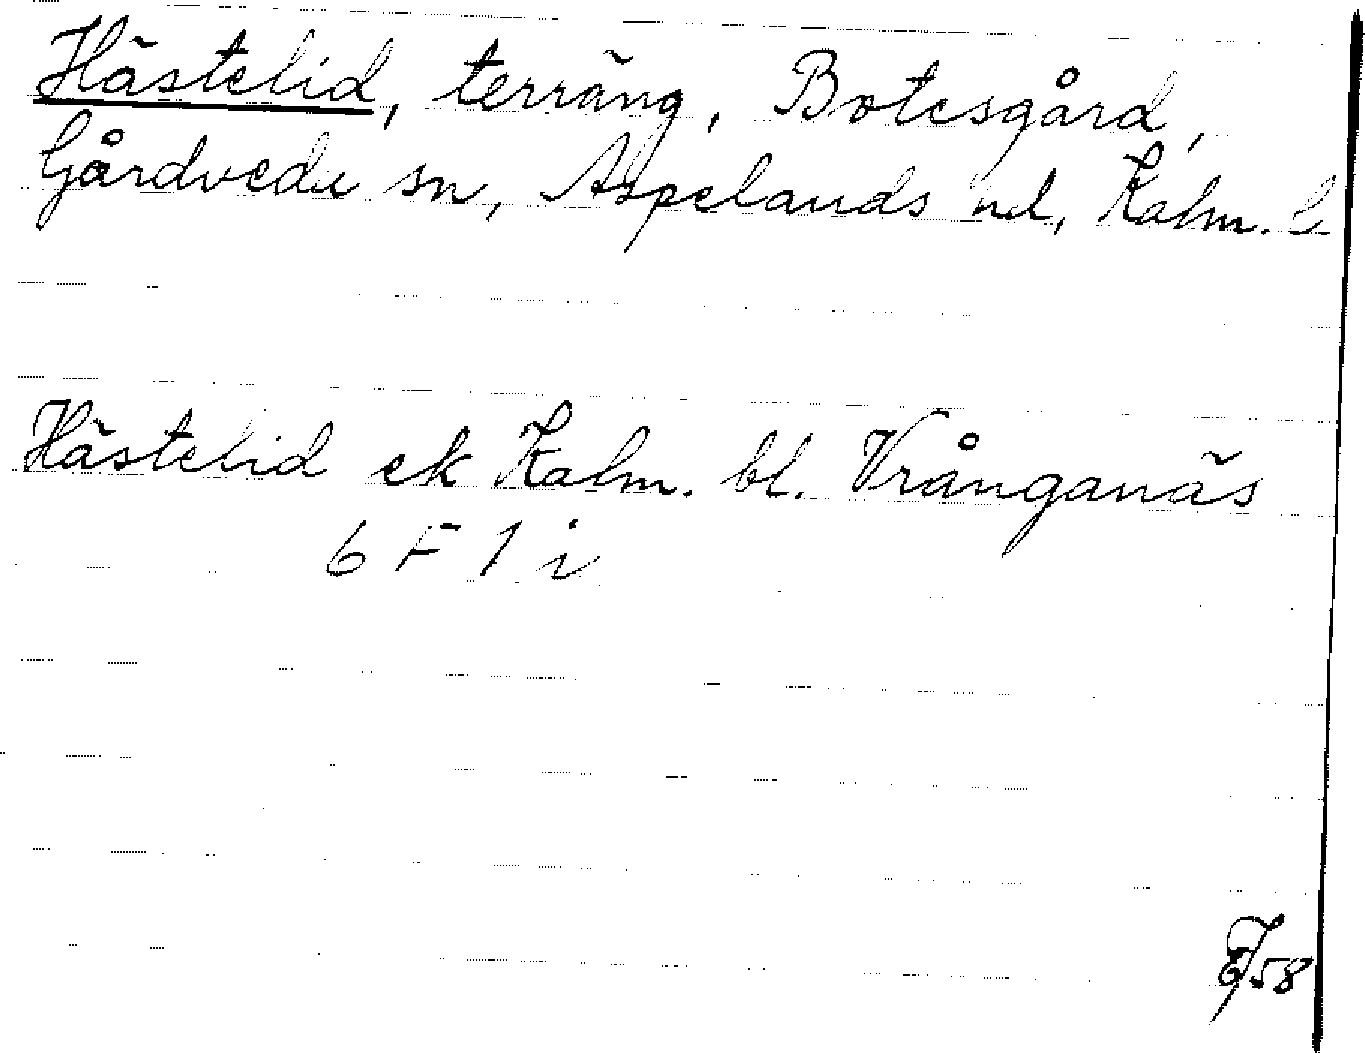 Hästelid, terräng, Botesgård,
Gårdveda sn, Aspelands hd, Kalm. l
Hästelid ek Kalm. bl. Vrånganäs
6 F 1 i
58